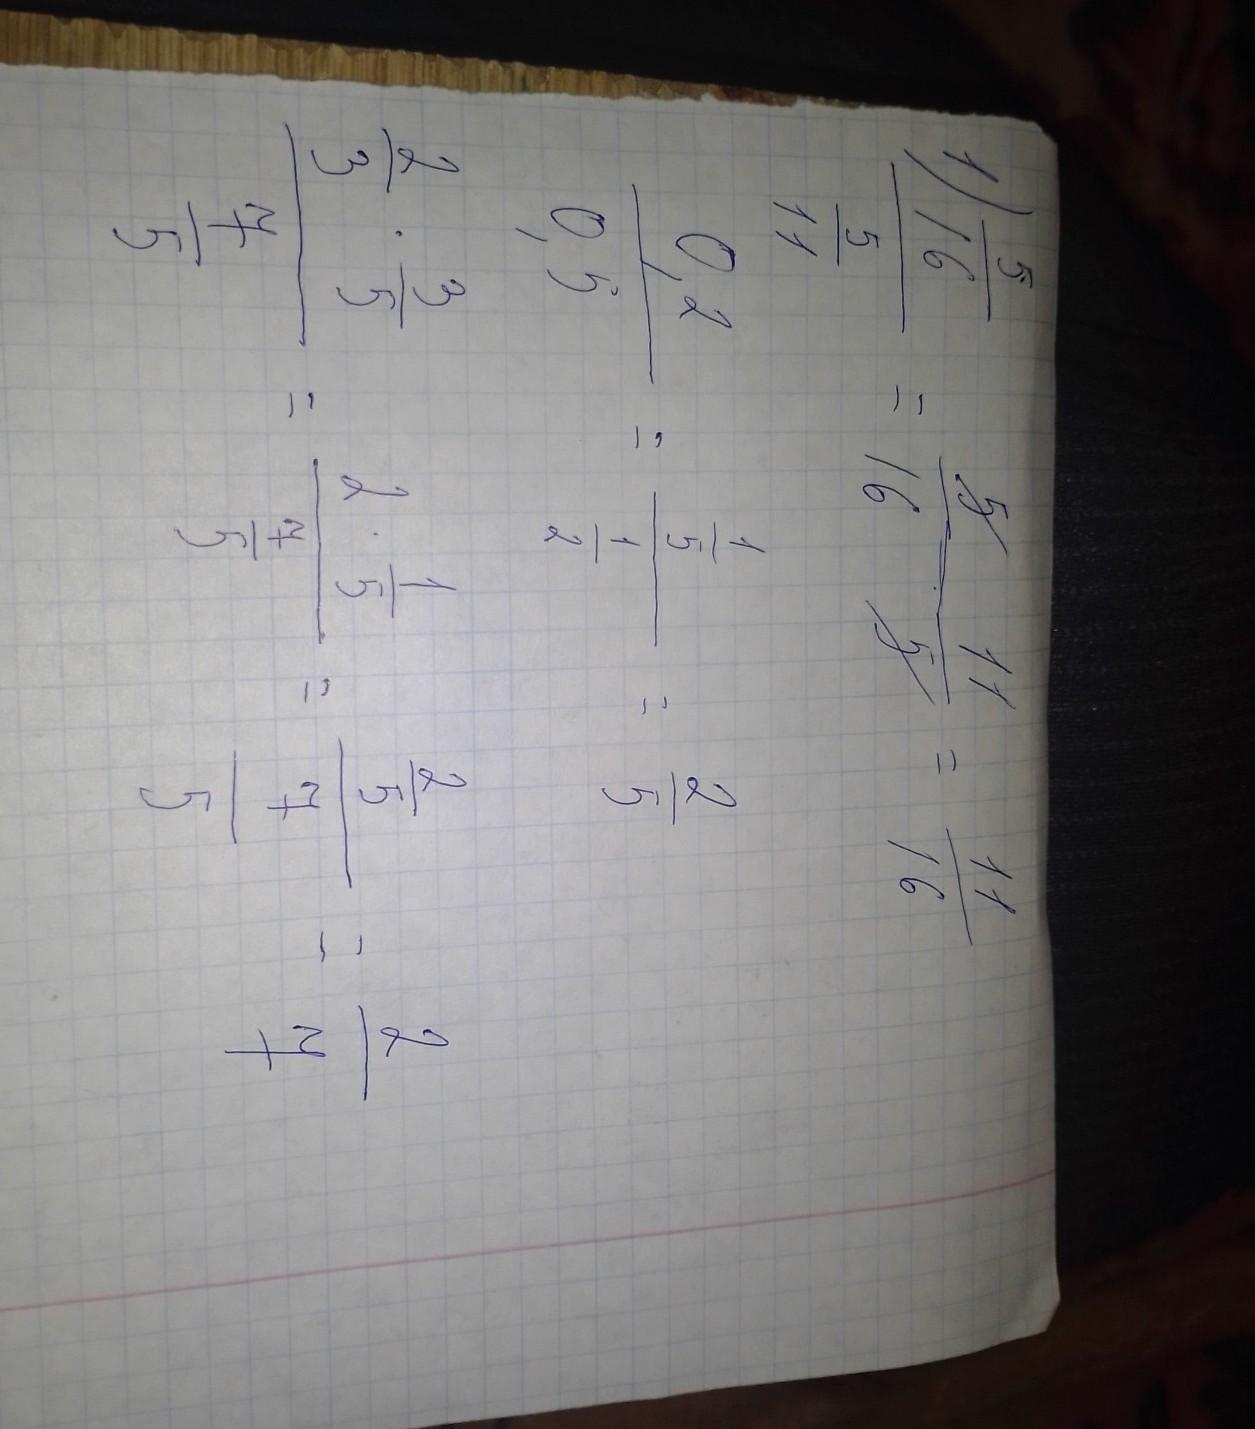 1) 5/16 / 5/11 = 5 · 11 / 16 5 = 11/16
0,2 / 0,5 = 1/5 / 1/2 = 2/5
2/3 · 3/5 / 7/5 = 2 · 1/5 / 7/5 = 2/5 / 7/5 = 2/7